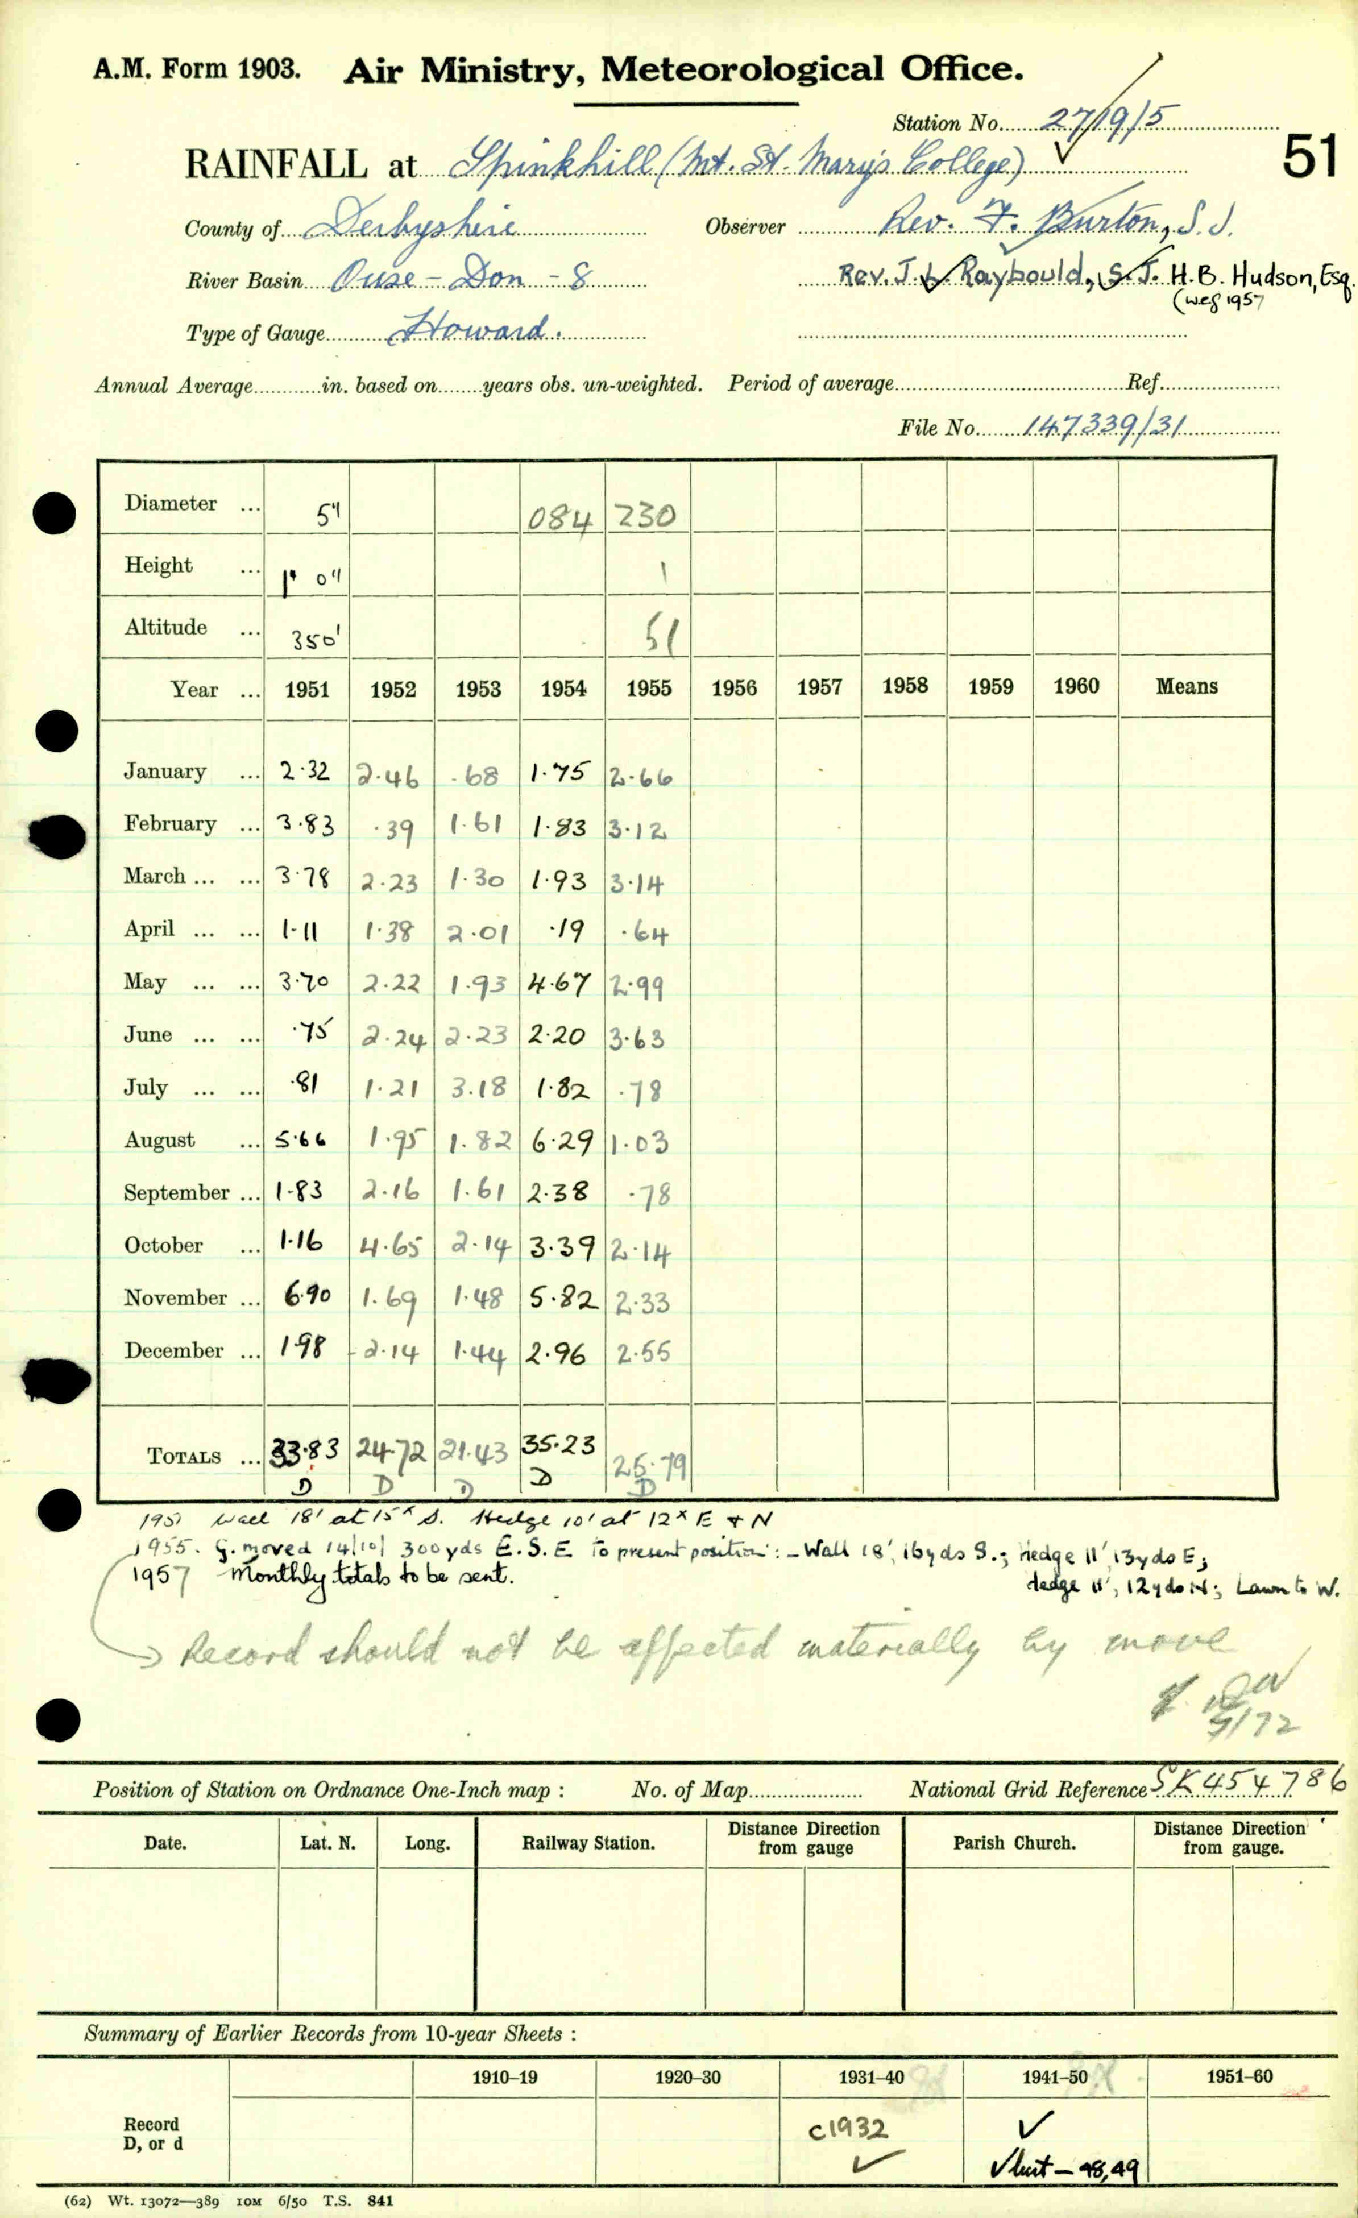 A.M. Form 1903. Air Ministry, Meteorological Office.
Station No. 27/19/5
RAINFALL at Spinkhill (Mt. St. Mary's College) 51
County of Derbyshire Observer Rev. F. Burton, S.J.
River Basin Ouse - Don - 8 Rev. J. L. Raybould, S.J. H.B. Hudson, Esq.
(wef 1957
Type of Gauge Howard.
Annual Average in. based on years obs. un-weighted. Period of average Ref.
File No. 147339/31
Diameter ... 5" 084 230
Height ... 1' 0" 1
Altitude ... 350' 51
Year ... 1951 1952 1953 1954 1955 1956 1957 1958 1959 1960 Means
January ... 2.32 2.46 .68 1.75 2.66
February ... 3.83 .39 1.61 1.83 3.12
March ... ... 3.78 2.23 1.30 1.93 3.14
April ... ... 1.11 1.38 2.01 .19 .64
May ... ... 3.70 2.22 1.93 4.67 2.99
June ... ... .75 2.24 2.23 2.20 3.63
July ... ... .81 1.21 3.18 1.82 .78
August ... 5.66 1.95 1.82 6.29 1.03
September ... 1.83 2.16 1.61 2.38 .78
October ... 1.16 4.65 2.14 3.39 2.14
November ... 6.90 1.69 1.48 5.82 2.33
December ... 1.98 2.14 1.44 2.96 2.55
TOTALS ... 33.83 24.72 21.43 35.23 25.79
D D D D D
1951 Wall 18' at 15x S. Hedge 10' at 12x E + N
1955. G. moved 14/10/ 300yds E.S.E. to present position :- Wall 18', 16yds S.; hedge 11', 13yds E;
1957 Monthly totals to be sent. Hedge 11', 12yds N; Lawn to W.
Record should not be affected materially by move
9/72
Position of Station on Ordnance One-Inch map : No. of Map National Grid Reference SK454786
Date. Lat. N. Long. Railway Station. Distance Direction from gauge Parish Church. Distance Direction from gauge.
Summary of Earlier Records from 10-year Sheets :
1910–19 1920–30 1931–40 1941–50 1951–60
Record c1932 ✓
D, or d ✓ ✓ but – 48,49
(62) Wt. 13072—389 10M 6/50 T.S. 841